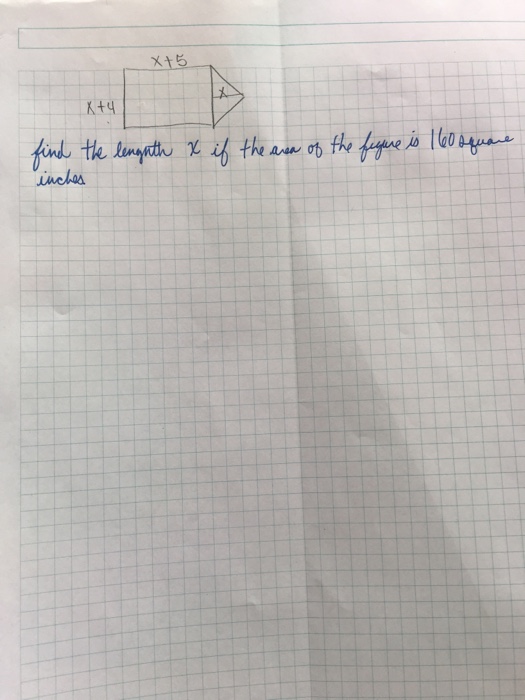 x+5
x+4
x
find the lengnth x if the area of the figure is 160 square
inches